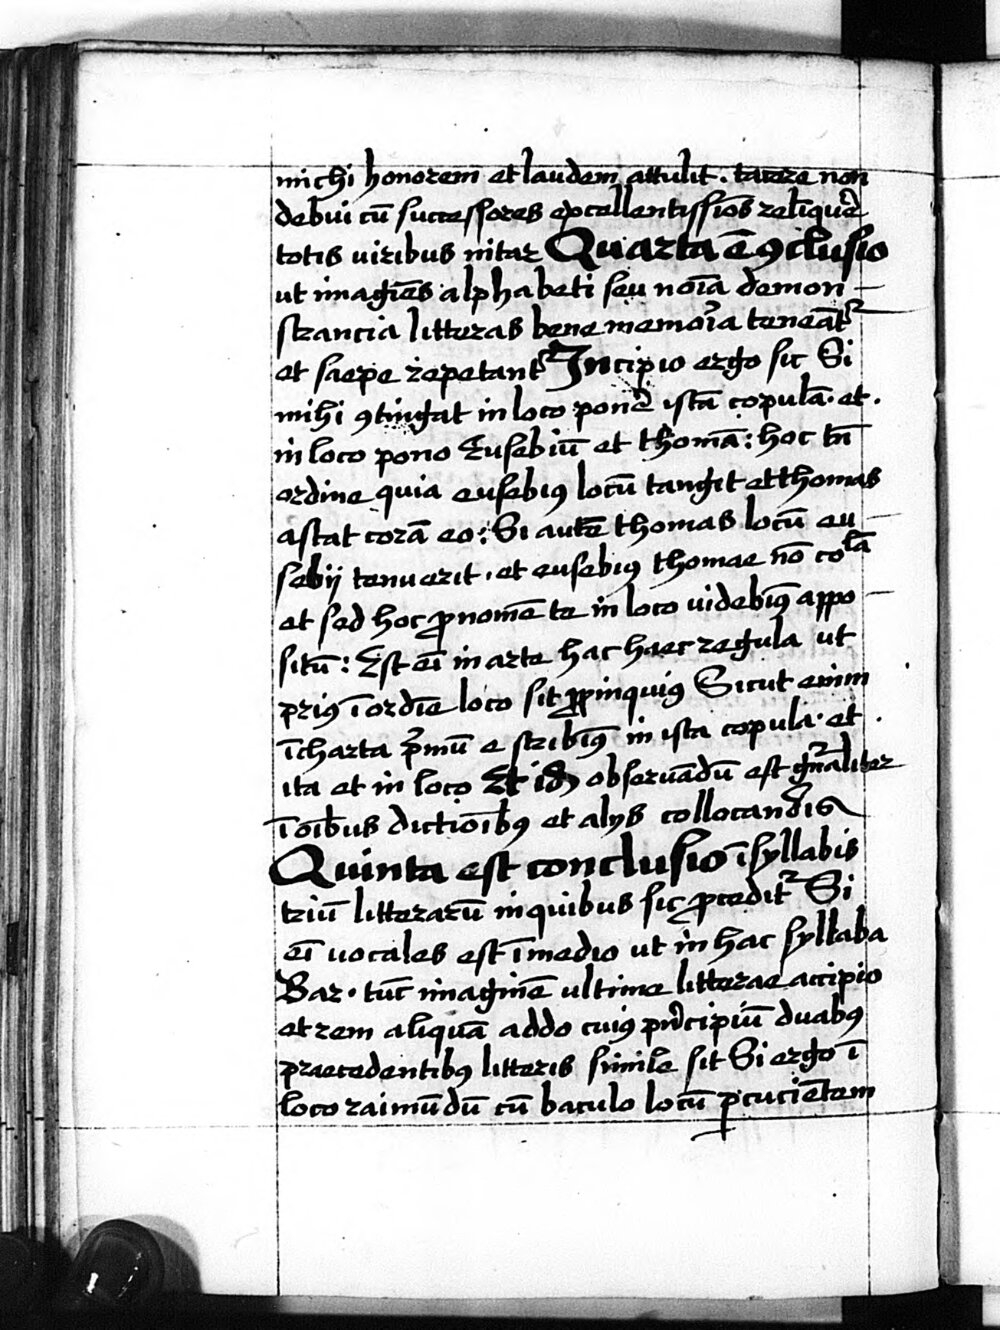 michi honorem et laudem attulit. tacere non
debui cū successores excellentissiōs reliquē
totis uiribus nitar Quarta ē ꝯclusio
ut imagiēs alphabeti seu noīa demon
strancia litteras bene memoria teneāt᷑
et saepe repetant᷑ Incipio ergo sic Si
mihi ꝯtingat in loco ponē istā copulā· et ·
in loco pono Eusebiū et thomā: hoc tn̄
ordine quia eusebiꝰ locū tangit et thomas
astat corā eo: Si autē thomas locū eu
sebij tenuerit · et eusebiꝰ thomae nō colā
et sed hoc ꝓnomē te in loco uidebimꝰ appo
sitū: Est eī in arte hac haec regula ut
priꝰ ī ordīe loco sit ꝓpinquiꝰ Sicut enim
ī charta pͥmū e stribimꝰ in ista copula· et ·
ita et in loco Et id obseruādū est gn̄aliter
ī oībus dictioībꝰ et alijs collocandis
Quinta est conclusio ī syllabis
triū litterarū in quibus sic ꝓcedit᷑ Si
eī uocales est ī medio ut in hac syllaba
Bar· tūc imaginē ultime litterae accipio
et rem aliquā addo cuiꝰ prīcipiū duabꝰ
praecedentibꝰ litteris simile sit Si ergo ī
loco raimūdū cū baculo locū ꝑcuciētem